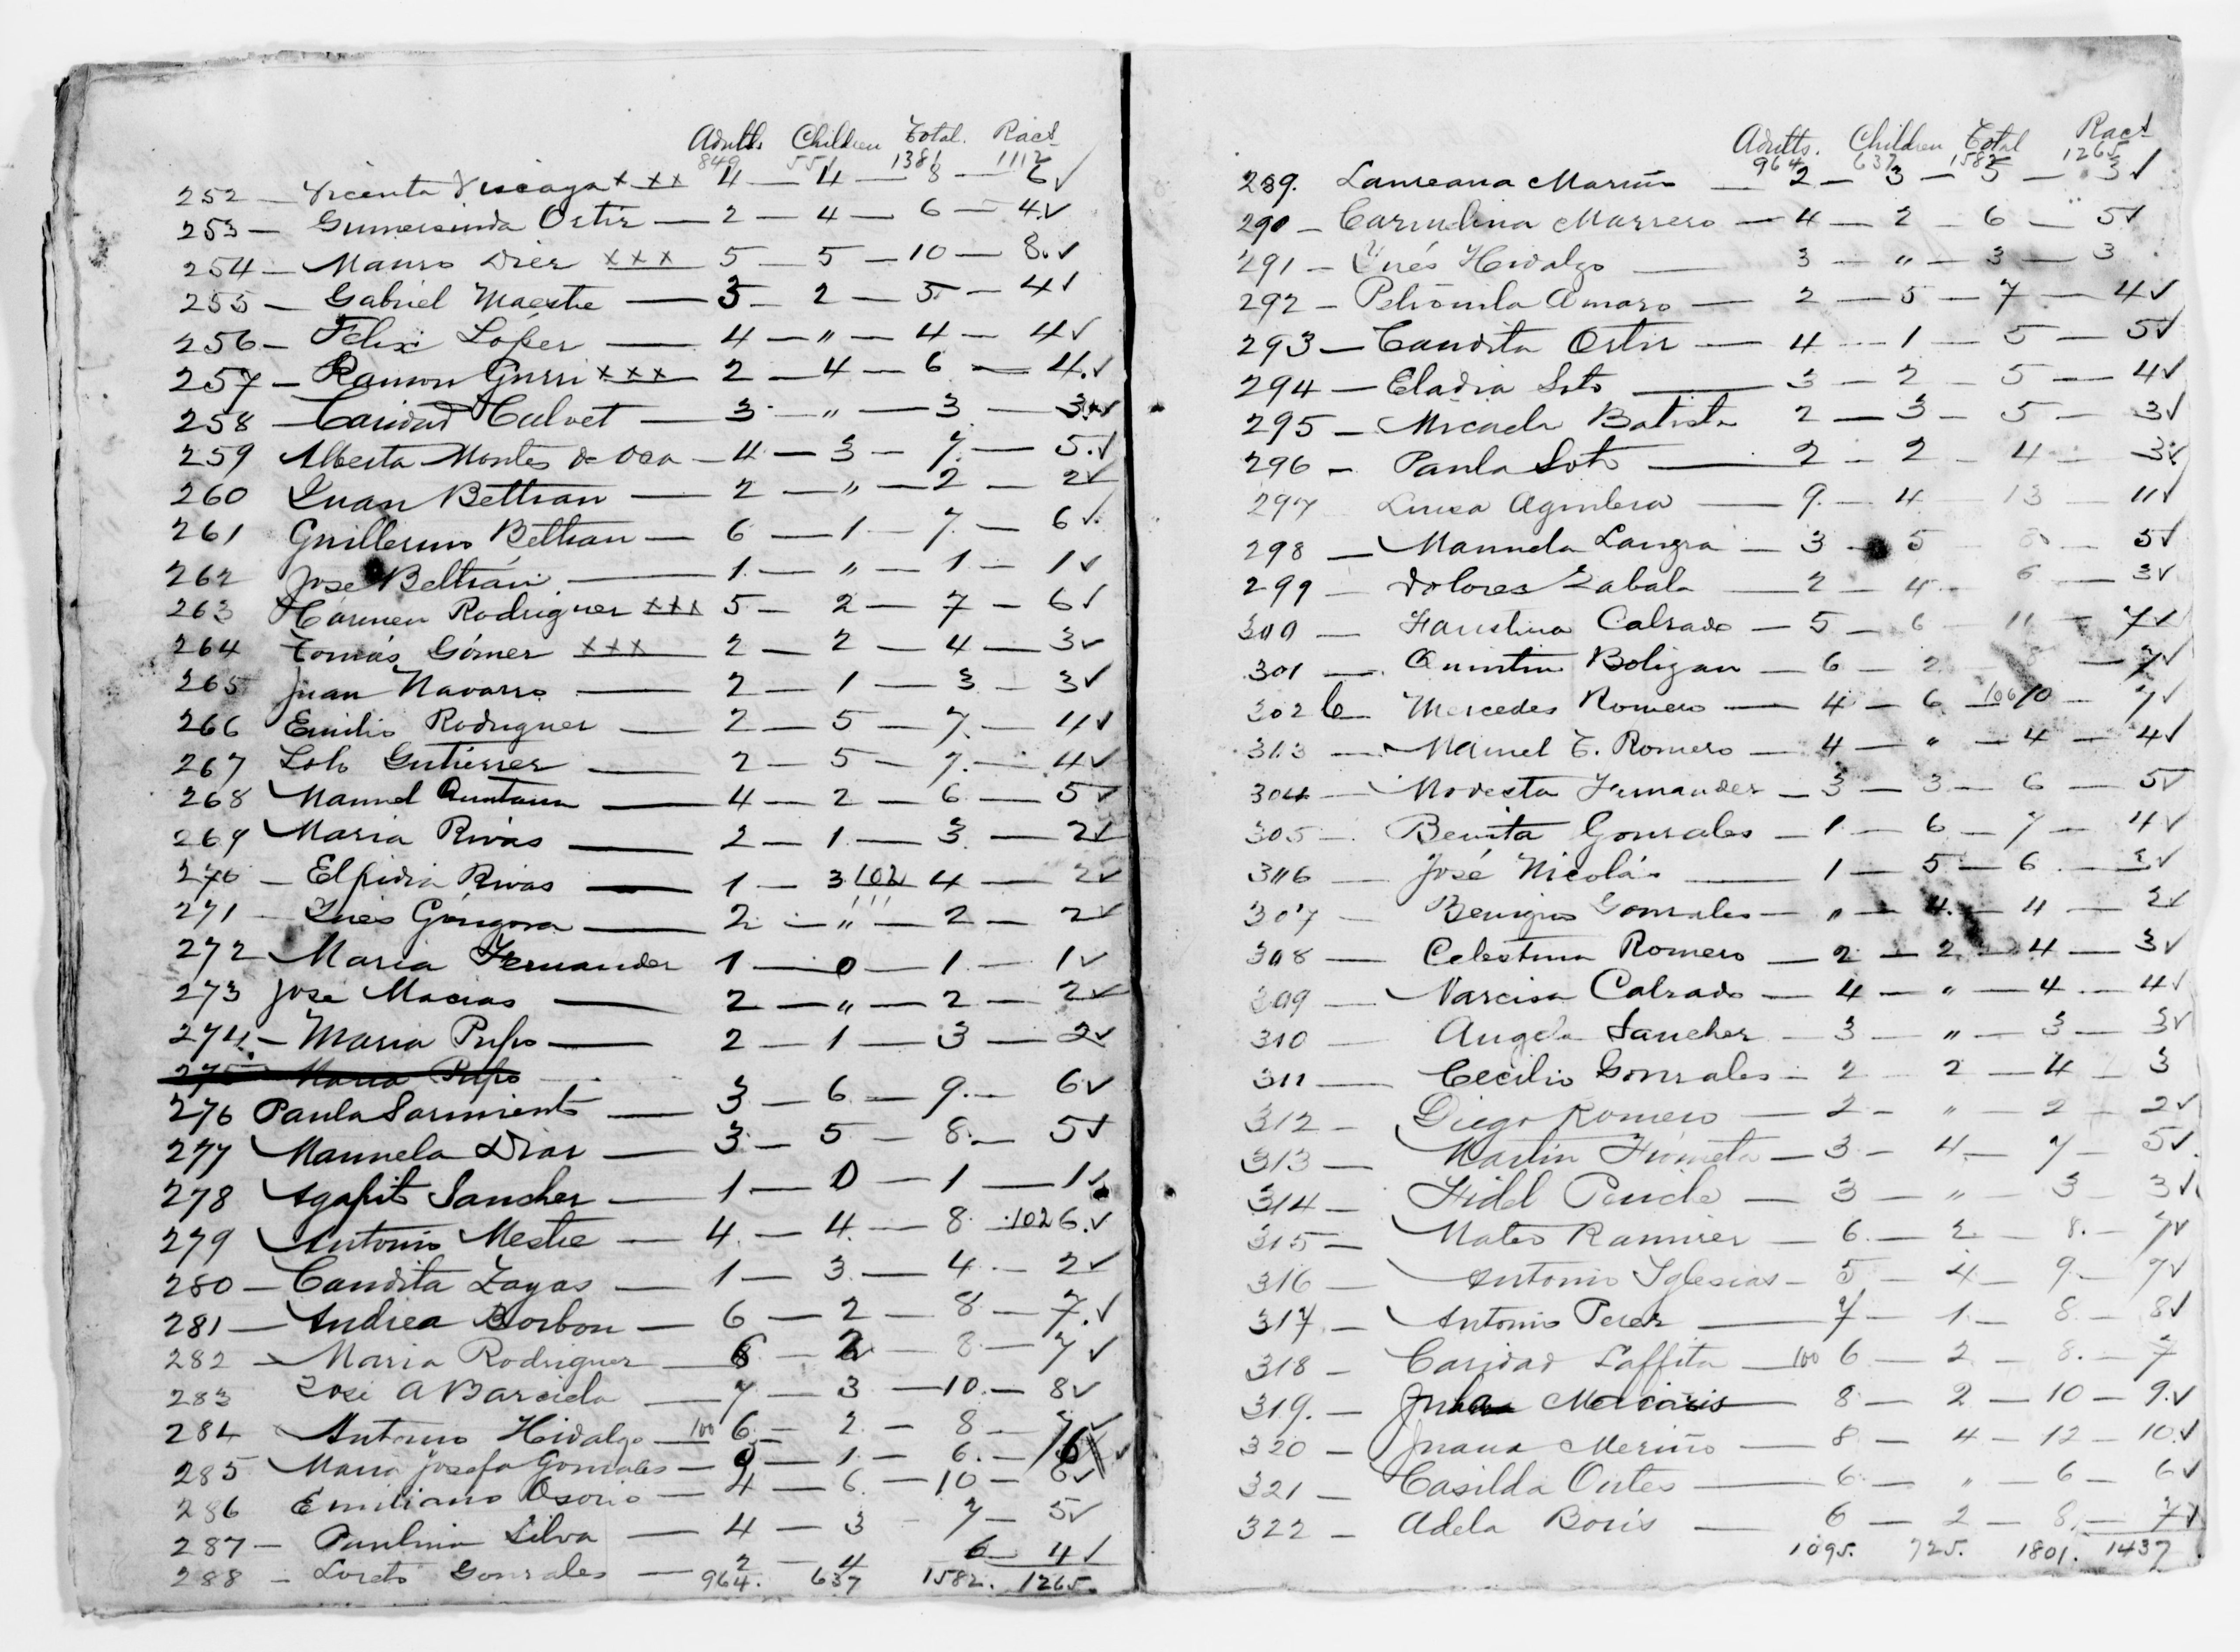 Adults Children Total. Ract
849 551 1381 1112
252 — Vicenta Viscaya xxx 4 — 4 — 8 — 6 ✓
253 — Gumersinda Ortiz — 2 — 4 — 6 — 4 ✓
254 — Mauro Diez xxx 5 — 5 — 10 — 8. ✓
255 — Gabriel Maestre — 3 — 2 — 5 — 4 ✓
256 — Felix López — 4 — " — 4 — 4 ✓
257 — Ramon Gurri xxx 2 — 4 — 6 — 4. ✓
258 — Caridad Calvet — 3 — " — 3 — 3. ✓
259 Alberta Montes de Oca — 4 — 3 — 7. — 5. ✓
260 Juan Beltran — 2 — " — 2 — 2 ✓
261 Guillermo Beltran — 6 — 1 — 7. — 6 ✓
262 Jose Beltrán — 1. — " — 1 — 1 ✓
263 Cármen Rodriguez xxx 5 — 2 — 7 — 6 ✓
264 Tomás Gómez xxx 2 — 2 — 4 — 3 ✓
265 Juan Navarro — 2 — 1 — 3 — 3 ✓
266 Emilio Rodriguez — 2 — 5 — 7. — 4 ✓
267 Lolo Gutierrez — 2 — 5 — 7. — 4 ✓
268 Manuel Quntana — 4 — 2 — 6 — 5 ✓
269 Maria Rivas — 2 — 1 — 3 — 2 ✓
270 — Elpidia Rivas — 1 — 3 102 4 — 2 ✓
271 — Ynés Góngora — 2 — " — 2 — 2 ✓
272 Maria Fernandez 1 — 0 — 1 — 1 ✓
273 José Macias — 2 — " — 2 — 2 ✓
274. — Maria Pupo — 2 — 1 — 3 — 2 ✓
275 Maria Pupo
276 Paula Sarmiento — 3 — 6 — 9. — 6 ✓
277 Manuela Diaz — 3 — 5 — 8 — 5 ✓
278 Agapito Sanchez — 1 — 0 — 1 — 1 ✓
279 Antonio Mestre — 4. — 4. — 8 102 6. ✓
280 — Candita Zayas — 1 — 3 — 4 — 2 ✓
281 — Andrea Borbon — 6 — 2 — 8 — 7. ✓
282 — Maria Rodriguez — 6 — 2 — 8 — 7 ✓
283 José A Barcida — 7 — 3 — 10. — 8 ✓
284 Antonio Hidalgo — 100 6 — 2 — 8 — 7 ✓
285 Maria Josefa Gonzales — 5 — 1 — 6. — 6 ✓
286 Emiliano Osorio — 4 — 6 — 10 — 8 ✓
287 — Paulina Silva — 4 — 3 — 7 — 5 ✓
288 — Loreto Gonzales — 2 — 4 6 — 4 ✓
964. 637 1582. 1265.
Adults. Children Total Ract
964 637 1582 1265
289. Laureana Mariño — 2 — 3 — 5 — 3 ✓
290 — Carmelina Marrero — 4 — 2 — 6 — 5 ✓
291 — Ynés Hidalgo — 3 — " — 3 — 3
292 — Petronila Amaro — 2 — 5 — 7 — 4 ✓
293 — Candita Ortiz — 4 — 1 — 5 — 5 ✓
294 — Eladia Soto — 3 — 2 — 5 — 4 ✓
295 — Micaela Batista 2 — 3 — 5 — 3 ✓
296 — Paula Soto — 2 — 2 — 4 — 3 ✓
297 Luisa Aguilera — 9. — 4 13 — 11 ✓
298 — Manuela Langra — 3 — 5 — 5 ✓
299 — Dolores Zabala — 2 — 4 — 6 — 3 ✓
300 — Faustina Calzado — 5 — 6 — 11 — 7 ✓
301 — Quintin Boligan — 6 — 2 — 8 — 7 ✓
302 6 Mercedes Romero — 4 — 6 100 10 — 7 ✓
303 — Manuel T. Romero — 4 — " — 4 — 4 ✓
304 — Modesta Fernandez — 3 — 3 — 6 — 5 ✓
305 — Benita Gonzales — 1 — 6 — 7 — 4 ✓
306 — José Nicolás — 1 — 5 — 6 — ✓
307 — Benigno Gonzales — " — 4 — 4 — 2 ✓
308 — Celestina Romero — 2 — 2 — 4 — 3 ✓
309 — Narcisa Calzado — 4 — " — 4 — 4 ✓
310 — Angela Sanchez — 3 — " — 3 — 3 ✓
311 — Cecilio Gonzales — 2 2 — 4 — 3
312 — Diego Romero — 2 — " — 2 — 2 ✓
313 — Martin Frometa — 3 — 4 — 7 — 5 ✓
314 — Fidel — 3 — " — 3 — 3 ✓
315 — Mateo Ramirez — 6 — 2 — 8. — 7 ✓
316 — Antonio Yglesias — 5 — 4 — 9 — 7 ✓
317. — Antonio Perez — 7 — 1 — 8 — 8 ✓
318 — Caridad Laffita — 100 6 — 2 — 8. — 7
319. — — 8 — 2 — 10 — 9. ✓
320 — Juana Meriño — 8 — 4 — 12 — 10. ✓
321 — Casilda — 6 — " — 6 — 6 ✓
322 — Adela Boris — 6 — 2 — 8 — 7 ✓
1095. 725. 1801. 1437